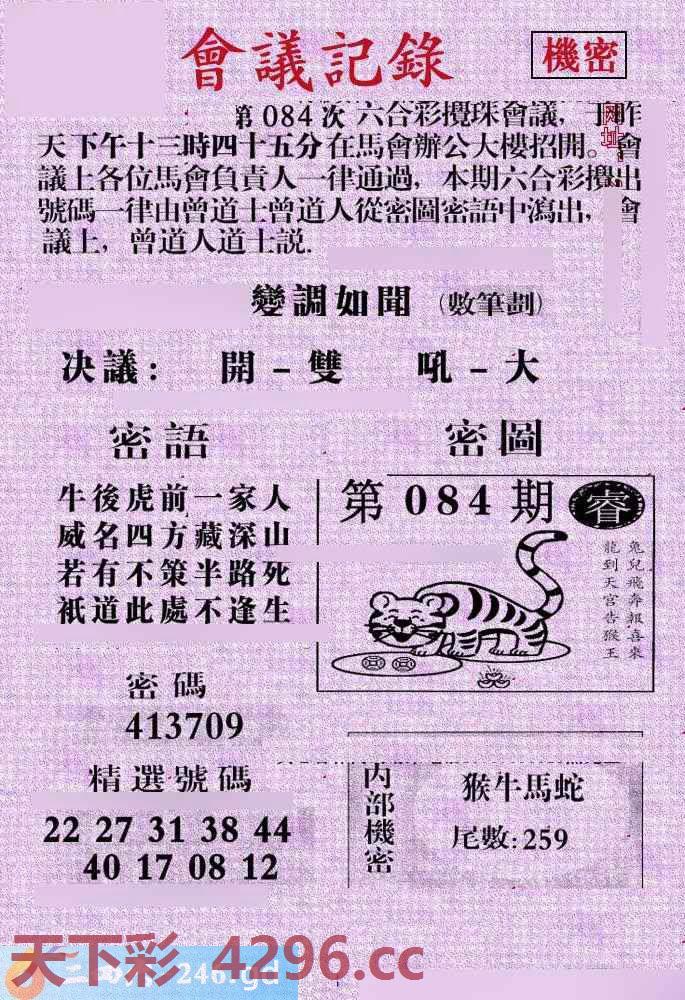 會議記錄
機密
第084次六合彩攪珠會議，于昨
天下午十三時四十五分在馬會辦公大樓招開。會
議上各位馬會負責人一律通過，本期六合彩攪出
號碼一律由曾道士曾道人從密圖密語中瀉出，會
議上，曾道人道士説.
网址:
變調如聞（數筆劃）
决議： 開－雙 吼－大
密語
牛後虎前一家人
威名四方藏深山
若有不策半路死
衹道此處不逢生
密圖
第084期
睿
兔兒飛奔報喜來
龍到天宮告猴王
密碼
413709
精選號碼
22 27 31 38 44
40 17 08 12
内部機密
猴牛馬蛇
尾數:259
天下彩 4296.cc
246.gd